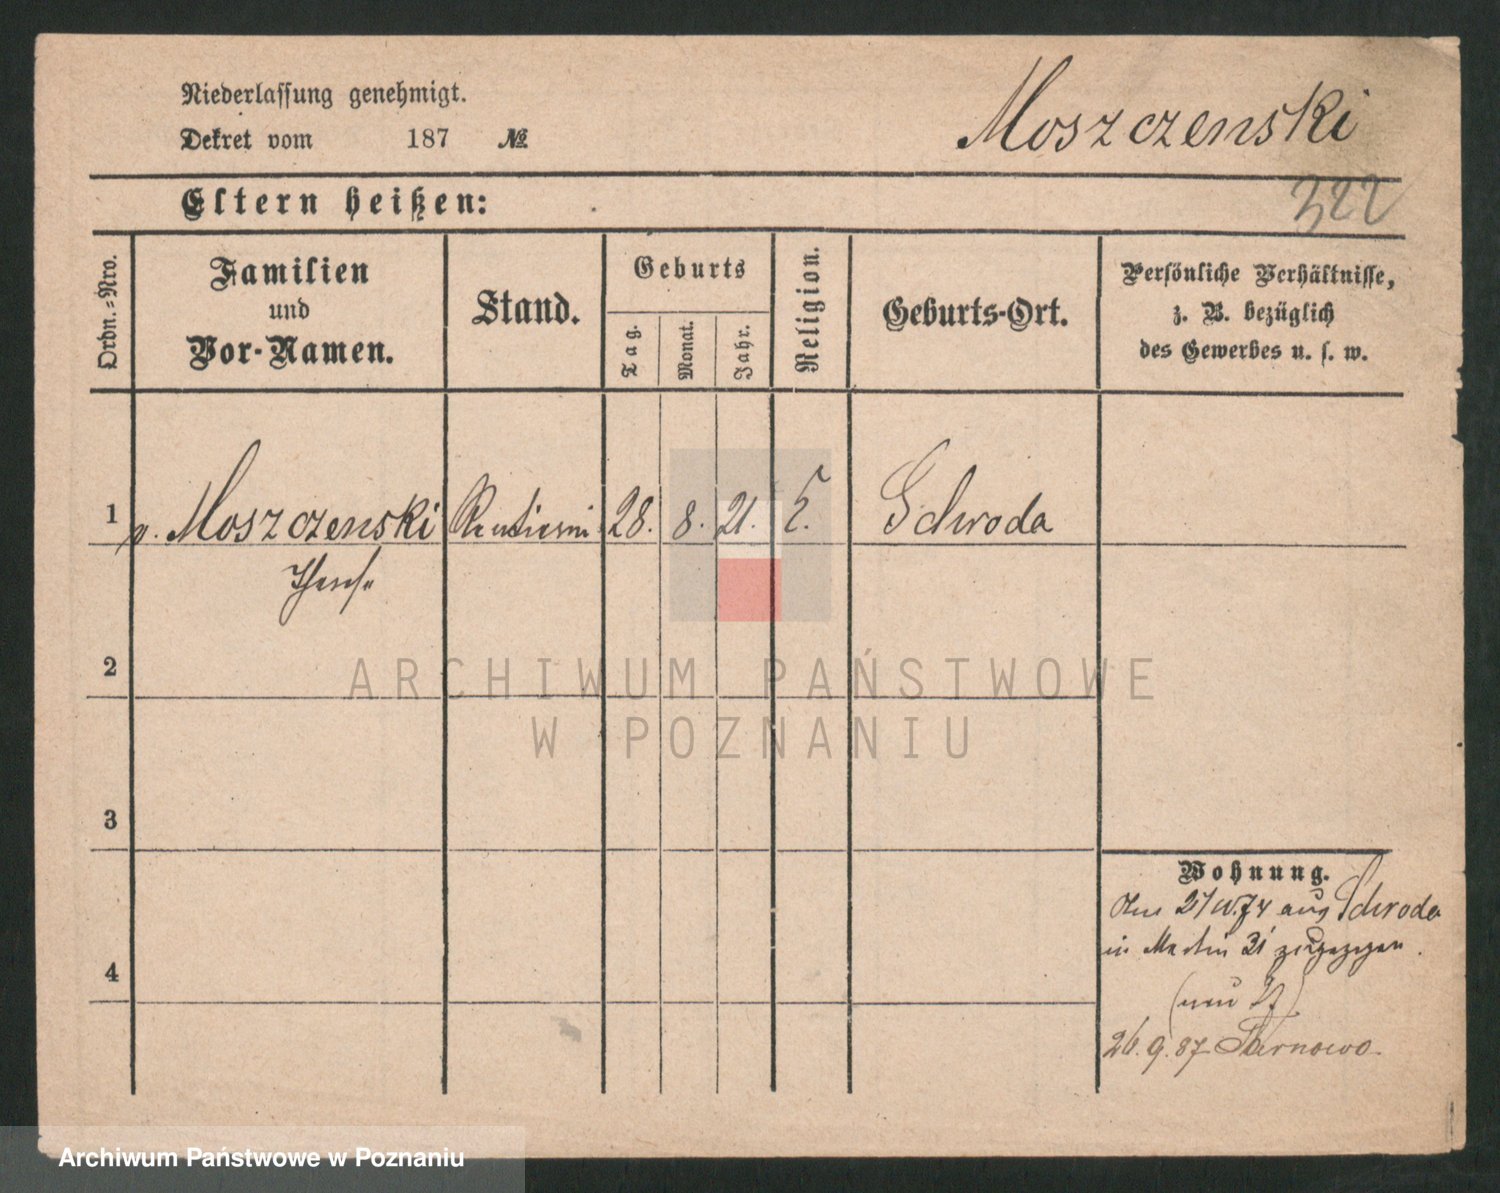 Niederlassung genehmigt.
Dekret vom 187 №
Moszczenski
322
Eltern heißen:
Ordn.-Nro.
Familien
und
Vor-Namen.
Stand.
Geburts
Tag.
Monat.
Jahr.
Religion.
Geburts-Ort.
Persönliche Verhältnisse,
z. B. bezüglich
des Gewerbes u. s. w.
1 v. Moszczenski 28. 8. 21. Schroda
2
3
4
Wohnung.
aus Schroda
in Martin 31 zugezogen.
(neu
26.9.87
ARCHIWUM PAŃSTWOWE
W POZNANIU
Archiwum Państwowe w Poznaniu